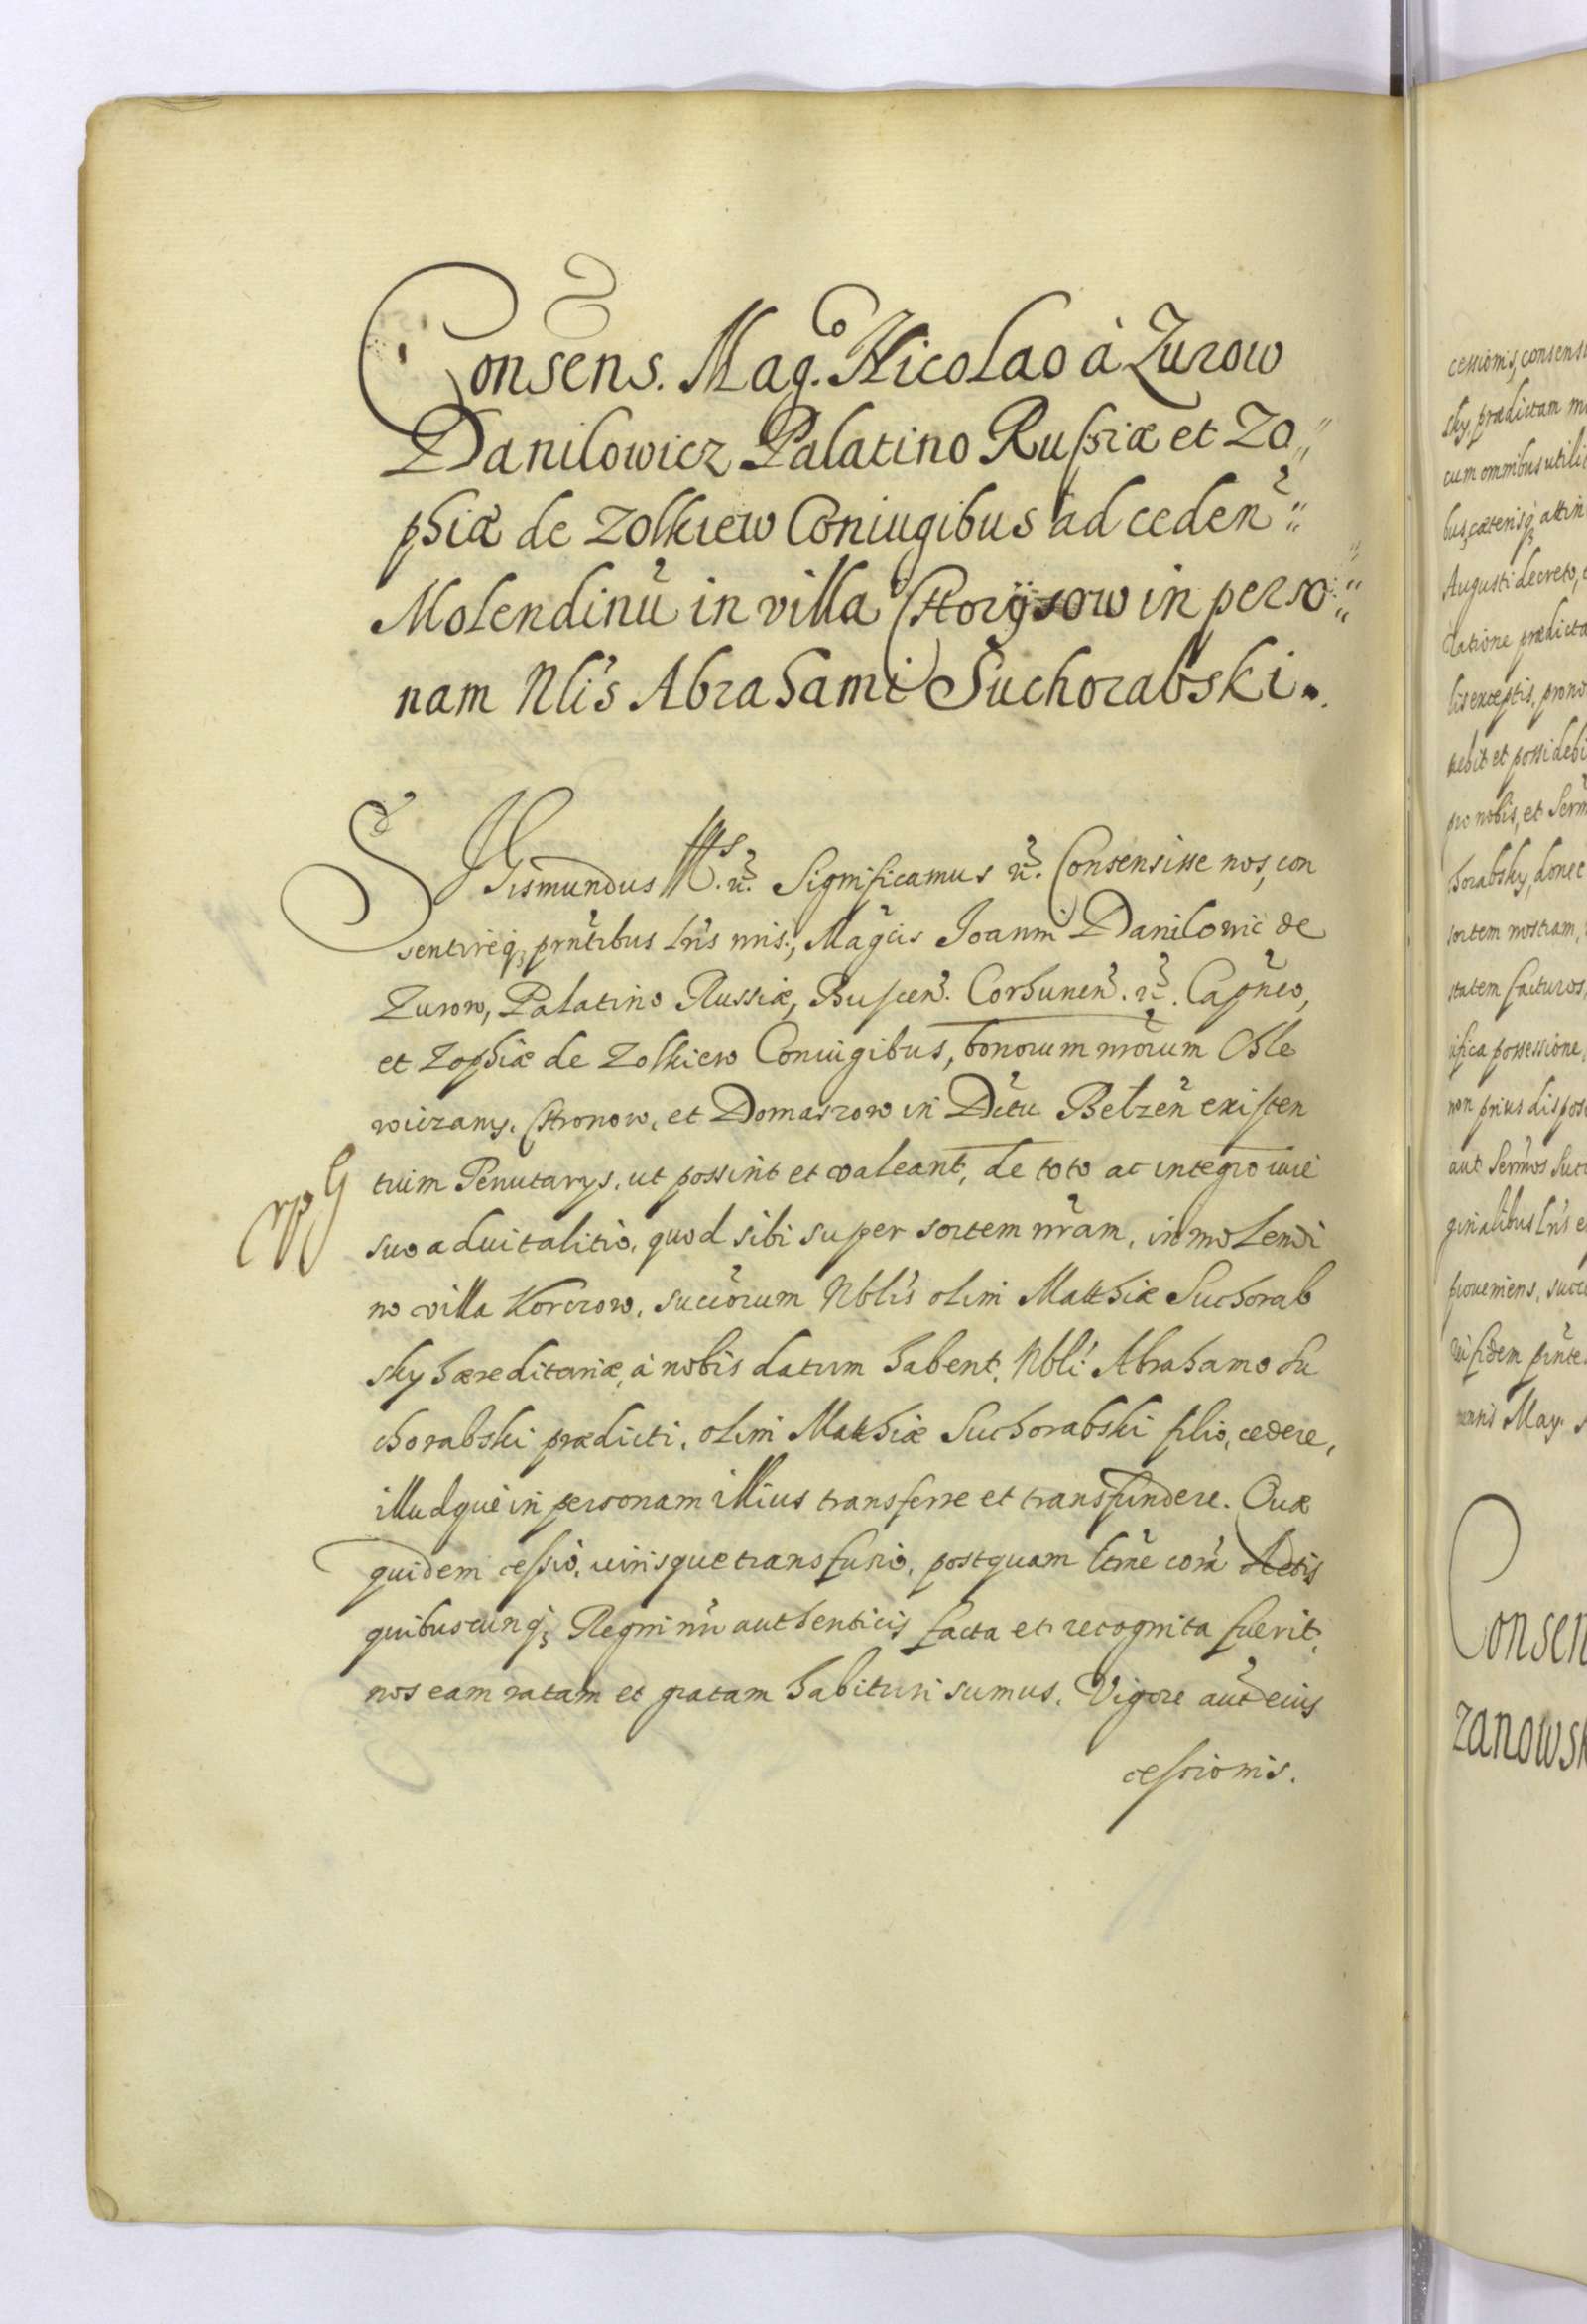 Consens. Mag.co Nicolao à Zurow
Danilowicz Palatino Russiæ et Zo„
phiæ de Zolkiew Coniugibus ad ceden̄„
Molendinū in villa in perso„
nam Nlis Abrahami Suchorabski.
Sigismundus IIIs. etc. Significamus etc. Consensisse nos, con
sentireq; prn̄tibus Lris nris., Magcis Joanni Danilowic de
Zurow, Palatino Russiæ, Buscen̄. Corsunen̄. etc. Capn̄eo,
et Zophiæ de Zolkiew Coniugibus, bonorum nr̄orum Chle
wiczany, et Domaszow in Dc̄tu Belzen̄ existen
tium Tenutarys. ut possint et valeant, de toto ac integro iure
suo aduitalitio, quod sibi super sortem nr̄am, in molendi
no villa Korczow, succōrum Nblis olim Matthiæ Suchorab
sky hæreditariæ, à nobis datum habent. Nbli Abrahamo Su
chorabski prædicti, olim Matthiæ Suchorabski filio, cedere,
illudque in personam illius transferre et transfundere. Quæ
quidem cessio, iurisque transfusio, postquam ltme corā Actis
quibuscunq; Regni nri authenticis facta et recognita fuerit,
nos eam ratam et gratam habituri sumus. Vigore aut̄ eius
cessionis.
cessionis, consensu
sky, prædictam
cum omnibus
bus, cæterisq; attin
Augusti decreto,
ratione prædicta
lis exceptis, pro
nebit et possidebi
pro nobis, et Serm
horabsky, donec
sortem nostram,
statem facturos,
ifica possessione,
non prius dispos
aut Sermos Succ
ginalibus Lris e
proueniens, succ
cui fidem prn̄te
mensis May.
Consen
zanowsk